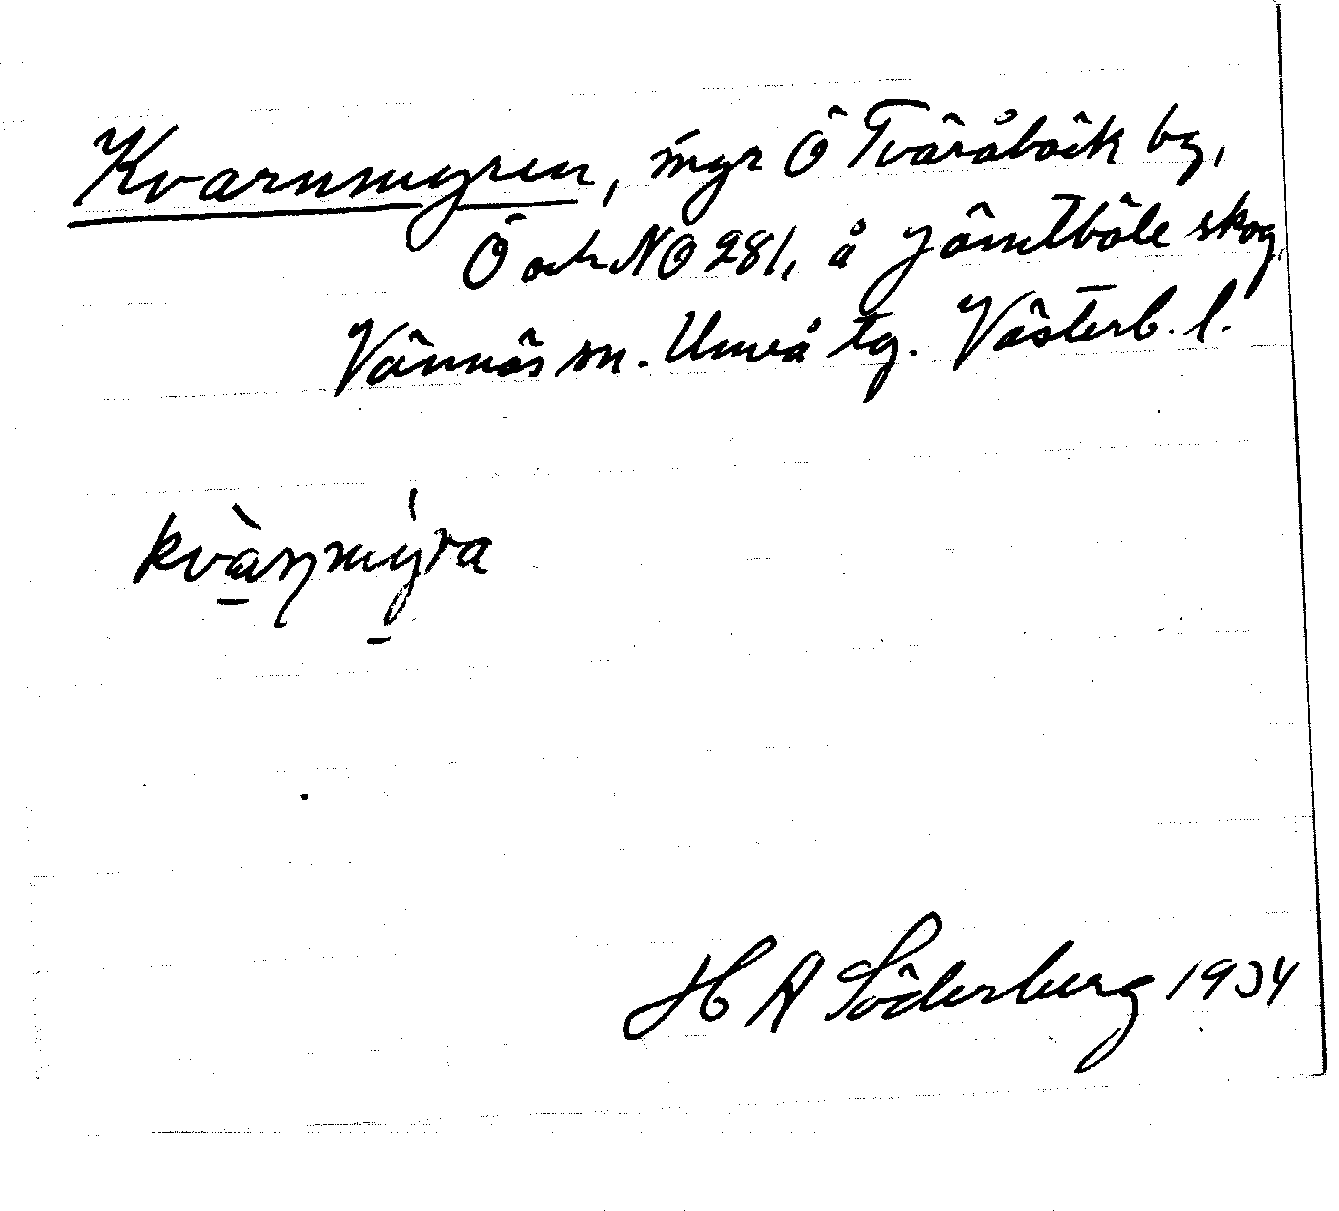 Kvarnmyren, myr Ö Tväråbäck by,
Ö och NO 281, å Jämtböle skog,
Vännäs sn. Umeå tg. Västerb. l.
kvàɳmýra
H A Söderberg 1934